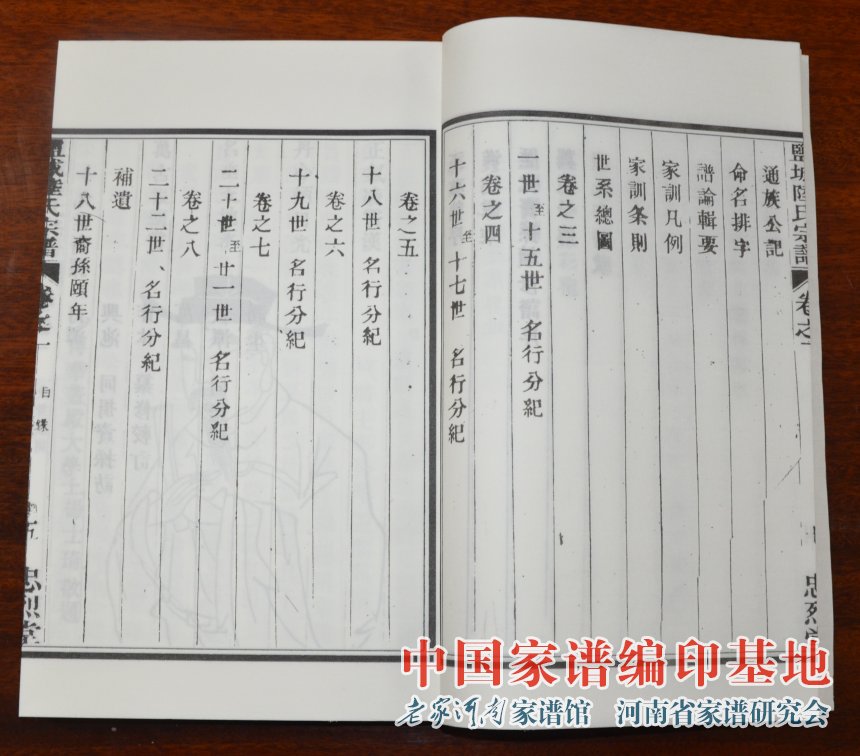 鹽城陸氏宗譜
卷之一
忠烈堂
通族公記
命名排字
譜論輯要
家訓凡例
家訓条則
世系總圖
卷之三
一世至十五世 名行分紀
卷之四
十六世至十七世 名行分紀
卷之五
十八世 名行分紀
卷之六
十九世 名行分紀
卷之七
二十世至廿一世 名行分紀
卷之八
二十二世、名行分紀
補遺
十八世裔孫頤年
鹽城陸氏宗譜
卷之一
目錄
五
忠烈堂
中国家谱编印基地
老家河南家谱馆 河南省家谱研究会